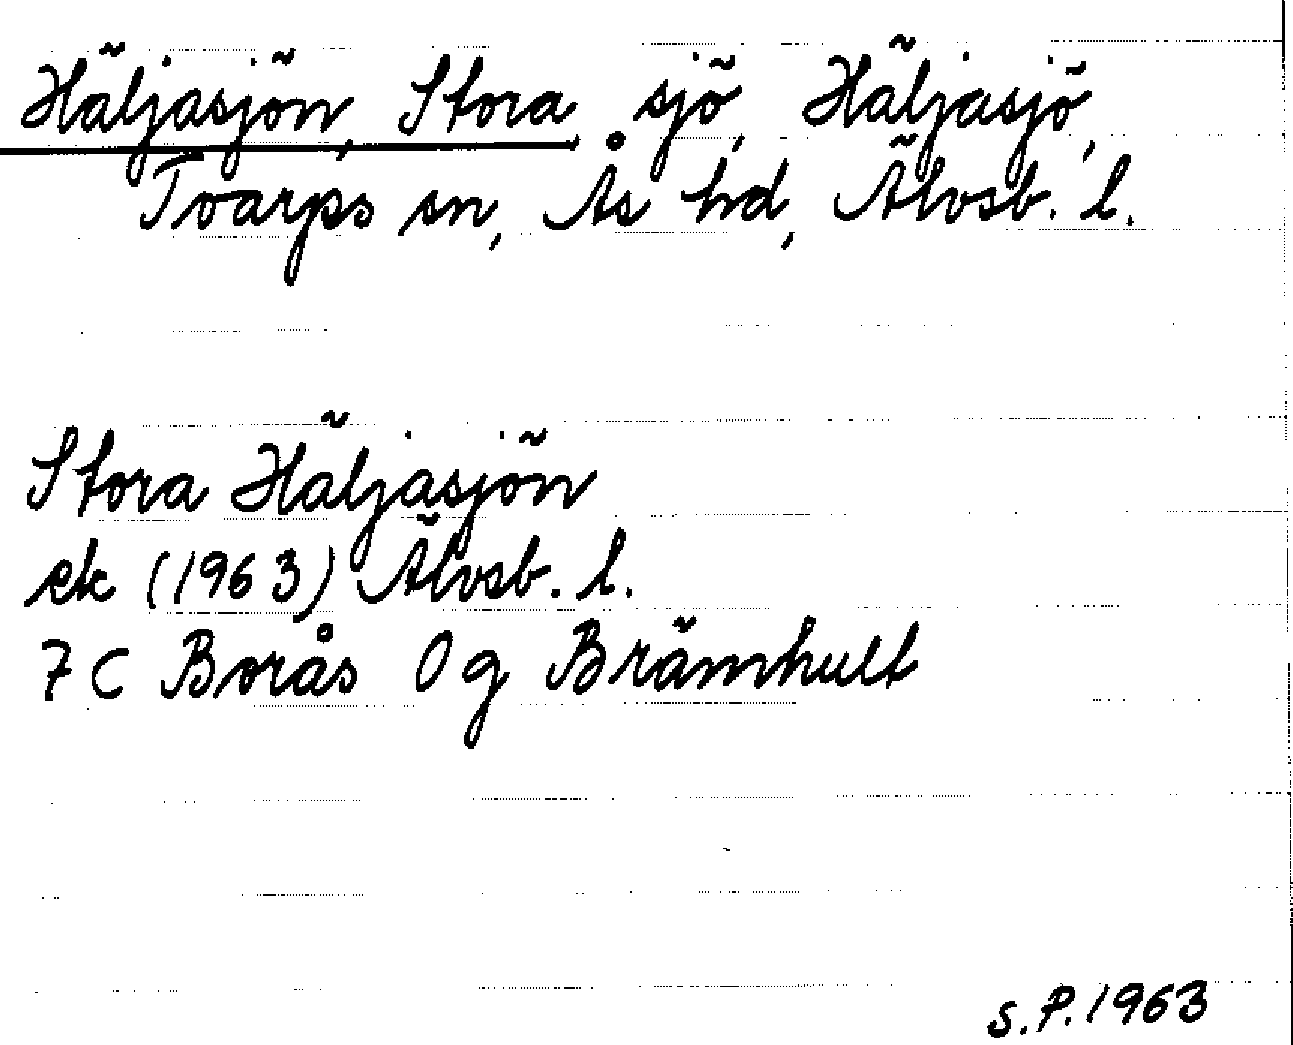 Häljasjön, Stora, sjö, Häljasjö,
Toarps sn, Ås hd, Älvsb. l.
Stora Häljasjön
ek (1963) Älvsb. l.
7 C Borås 0 g Brämhult
S.P. 1963